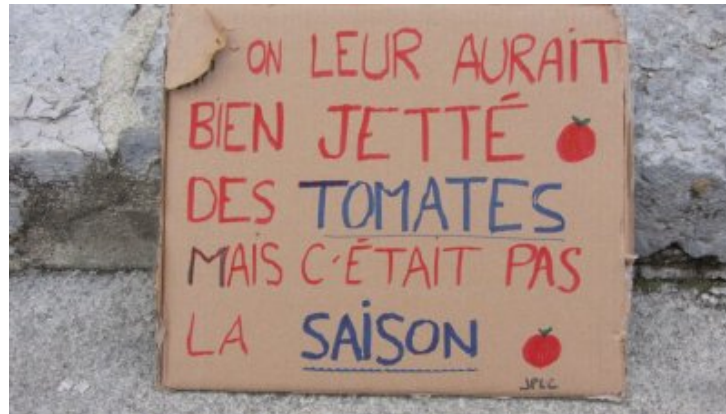 ON LEUR AURAIT
BIEN JETTÉ
DES TOMATES
MAIS C'ÉTAIT PAS
LA SAISON
JPLC